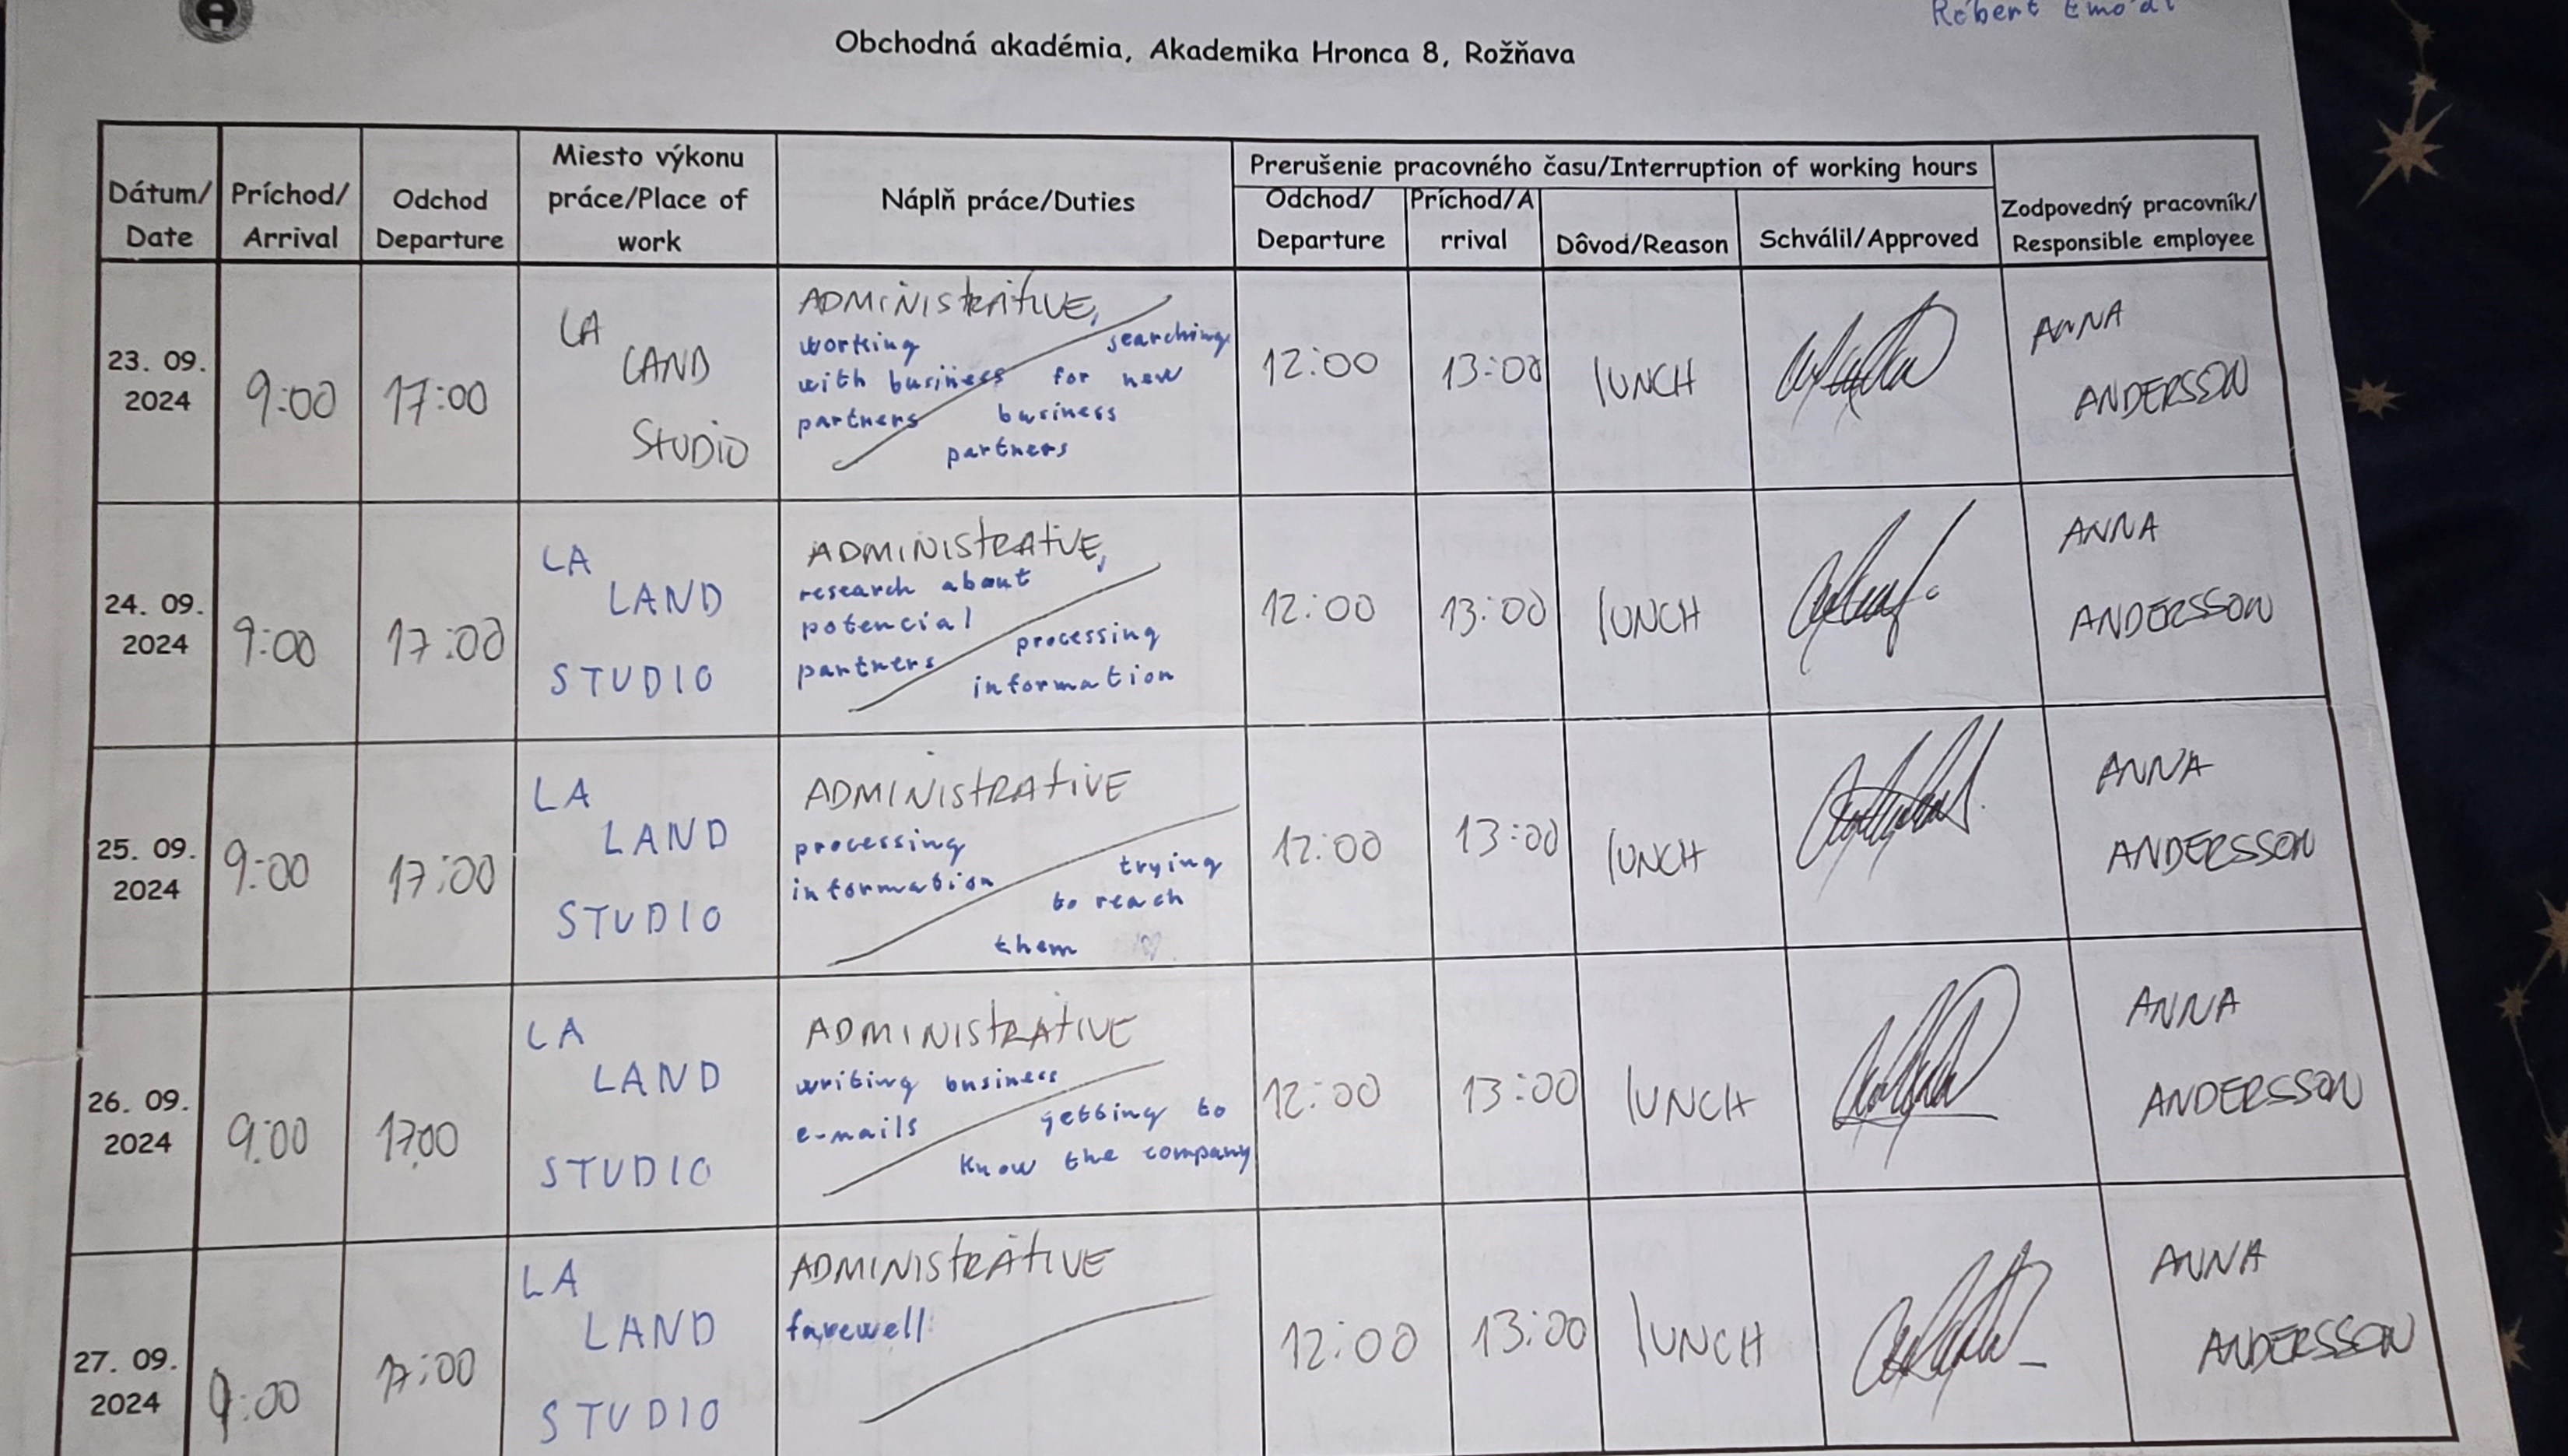 A
Róbert
Obchodná akadémia, Akademika Hronca 8, Rožňava
Dátum/
Date
Príchod/
Arrival
Odchod
Departure
Miesto výkonu
práce/Place of
work
Náplň práce/Duties
Prerušenie pracovného času/Interruption of working hours
Odchod/
Departure
Príchod/A
rrival
Dôvod/Reason
Schválil/Approved
Zodpovedný pracovník/
Responsible employee
23. 09.
2024
9:00
17:00
LA
LAND
STUDIO
ADMINISTRATIVE,
working
with business
partners
searching
for new
business
partners
12:00
13:00
LUNCH
ANNA
ANDERSSON
24. 09.
2024
9:00
17:00
LA
LAND
STUDIO
ADMINISTRATIVE,
research about
potencial
partners
processing
information
12:00
13:00
LUNCH
ANNA
ANDERSSON
25. 09.
2024
9:00
17:00
LA
LAND
STUDIO
ADMINISTRATIVE
processing
information
trying
to reach
them
12:00
13:00
LUNCH
ANNA
ANDERSSON
26. 09.
2024
9:00
17:00
LA
LAND
STUDIO
ADMINISTRATIVE
writing business
e-mails
getting to
know the company
12:00
13:00
LUNCH
ANNA
ANDERSSON
27. 09.
2024
9:00
17:00
LA
LAND
STUDIO
ADMINISTRATIVE
farewell
12:00
13:00
LUNCH
ANNA
ANDERSSON